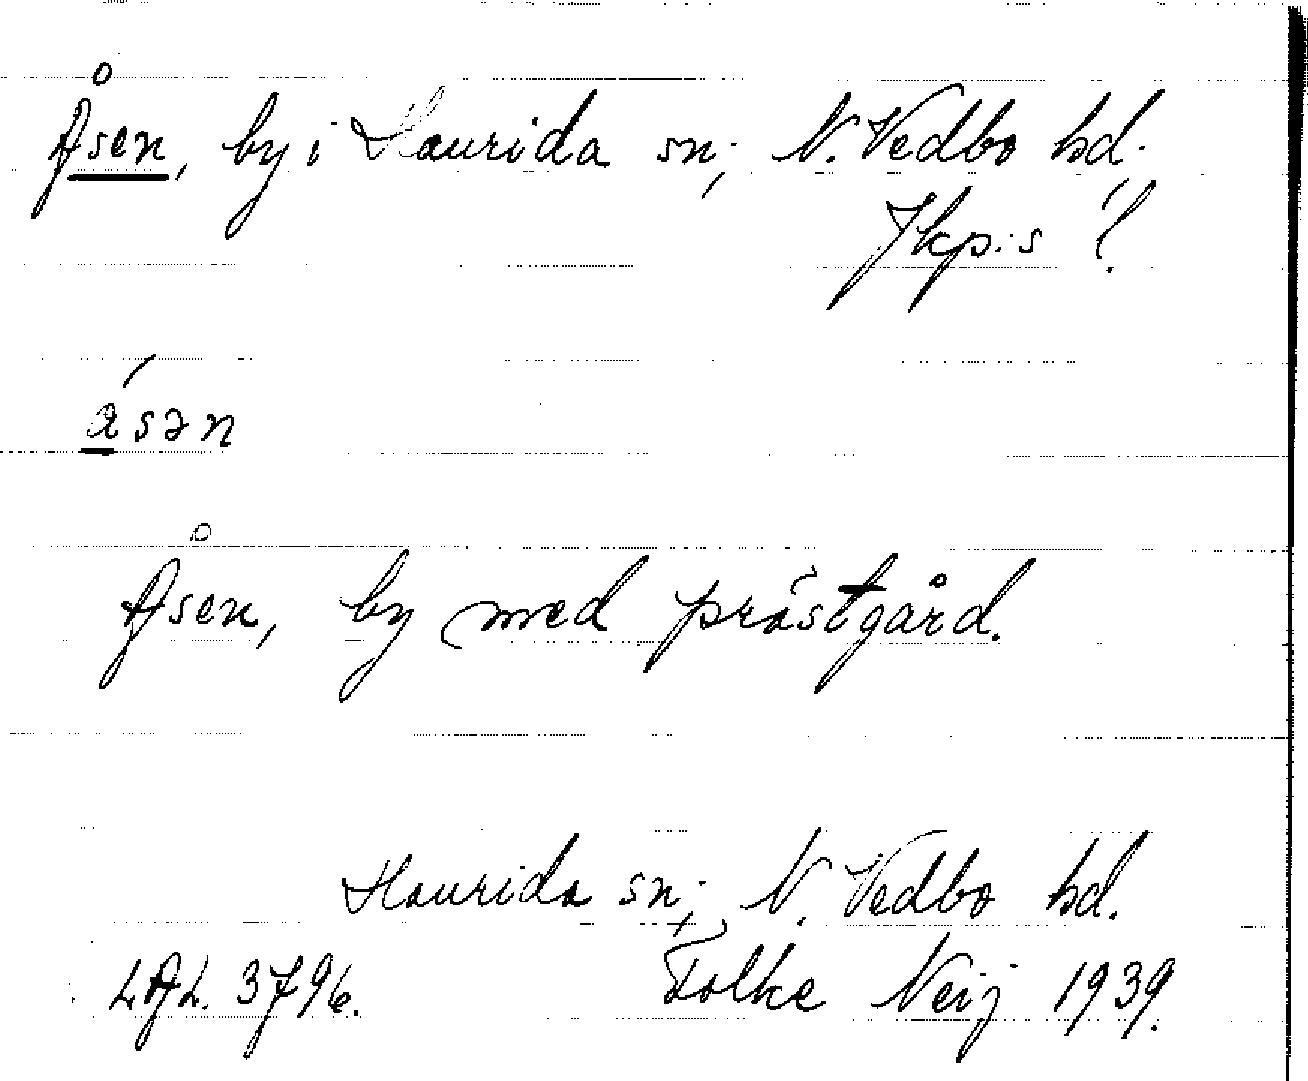 Åsen, by i Haurida sn; N. Vedbo hd.
Jkp:s l.
åsən
Åsen, by med prästgård.
Haurida sn; N. Vedbo hd.
LAL. 3796. Folke Neij 1939.